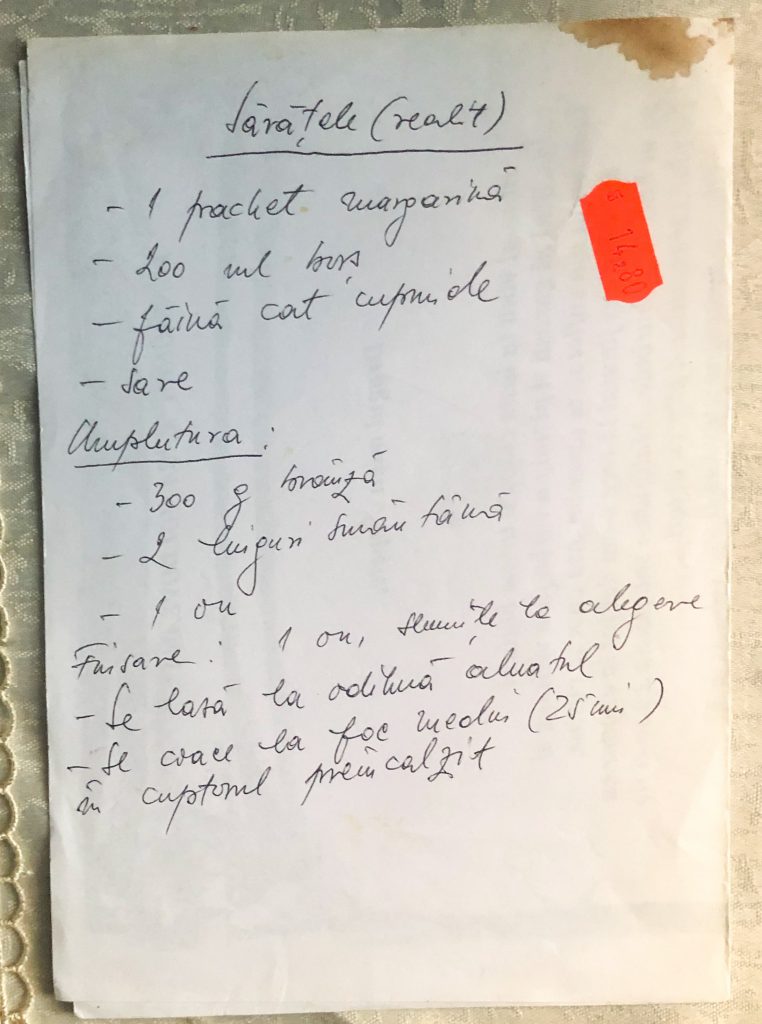 Sărățele (realit)
- 1 pachet margarină
- 200 ml borș
- făină cât cuprinde
- sare
Umplutura :
- 300 g brânză
- 2 linguri smântână
- 1 ou
Finisare : 1 ou, semințe la alegere
- Se lasă la odihnă aluatul
- Se coace la foc mediu (25 min)
în cuptorul preîncălzit
14.80